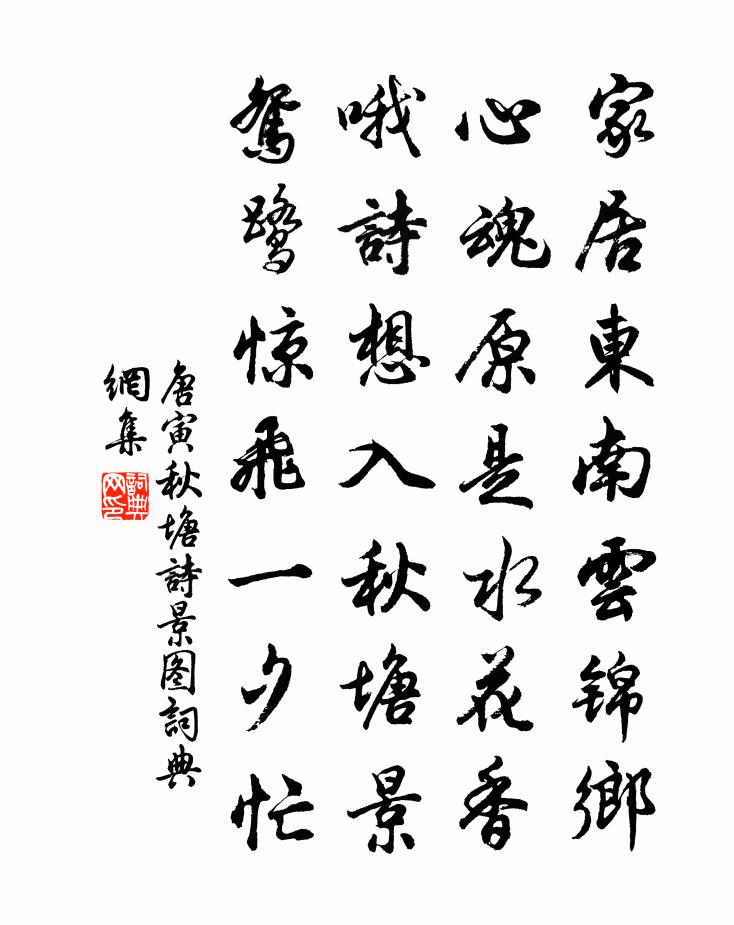 家居東南雲锦鄉
心魂原是水花香
哦詩想入秋塘景
鴛鹭惊飛一夕忙
唐寅秋塘詩景图詞典
網集
詞典
网印